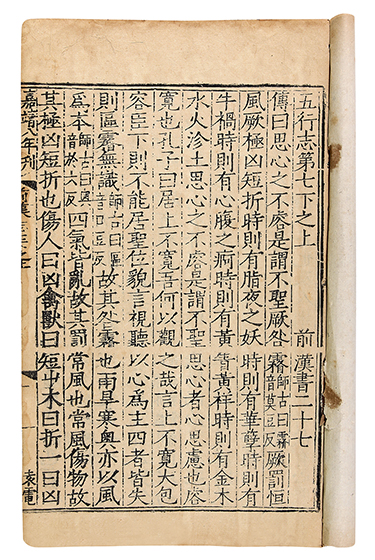 五行志第七下之上 前漢書二十七
傳曰思心之不容是謂不聖厥咎霿師古曰霿音莫豆反厥罰恒
風厥極凶短折時則有脂夜之妖時則有華孽時則有
牛禍時則有心腹之痾時則有黃眚黃祥時則有金木
水火沴土思心之不容是謂不聖思心者心思慮也容
寬也孔子曰居上不寬吾何以觀之哉言上不寬大包
容臣下則不能居聖位貌言視聽以心為主四者皆失
則區霿無識師古曰區音口豆反故其咎霿也雨旱寒奧亦以風
為本師古曰奧音於六反四氣皆亂故其罰常風也常風傷物故
其極凶短折也傷人曰凶禽獸曰短屮木曰折一曰凶
嘉靖八年刊 袁電